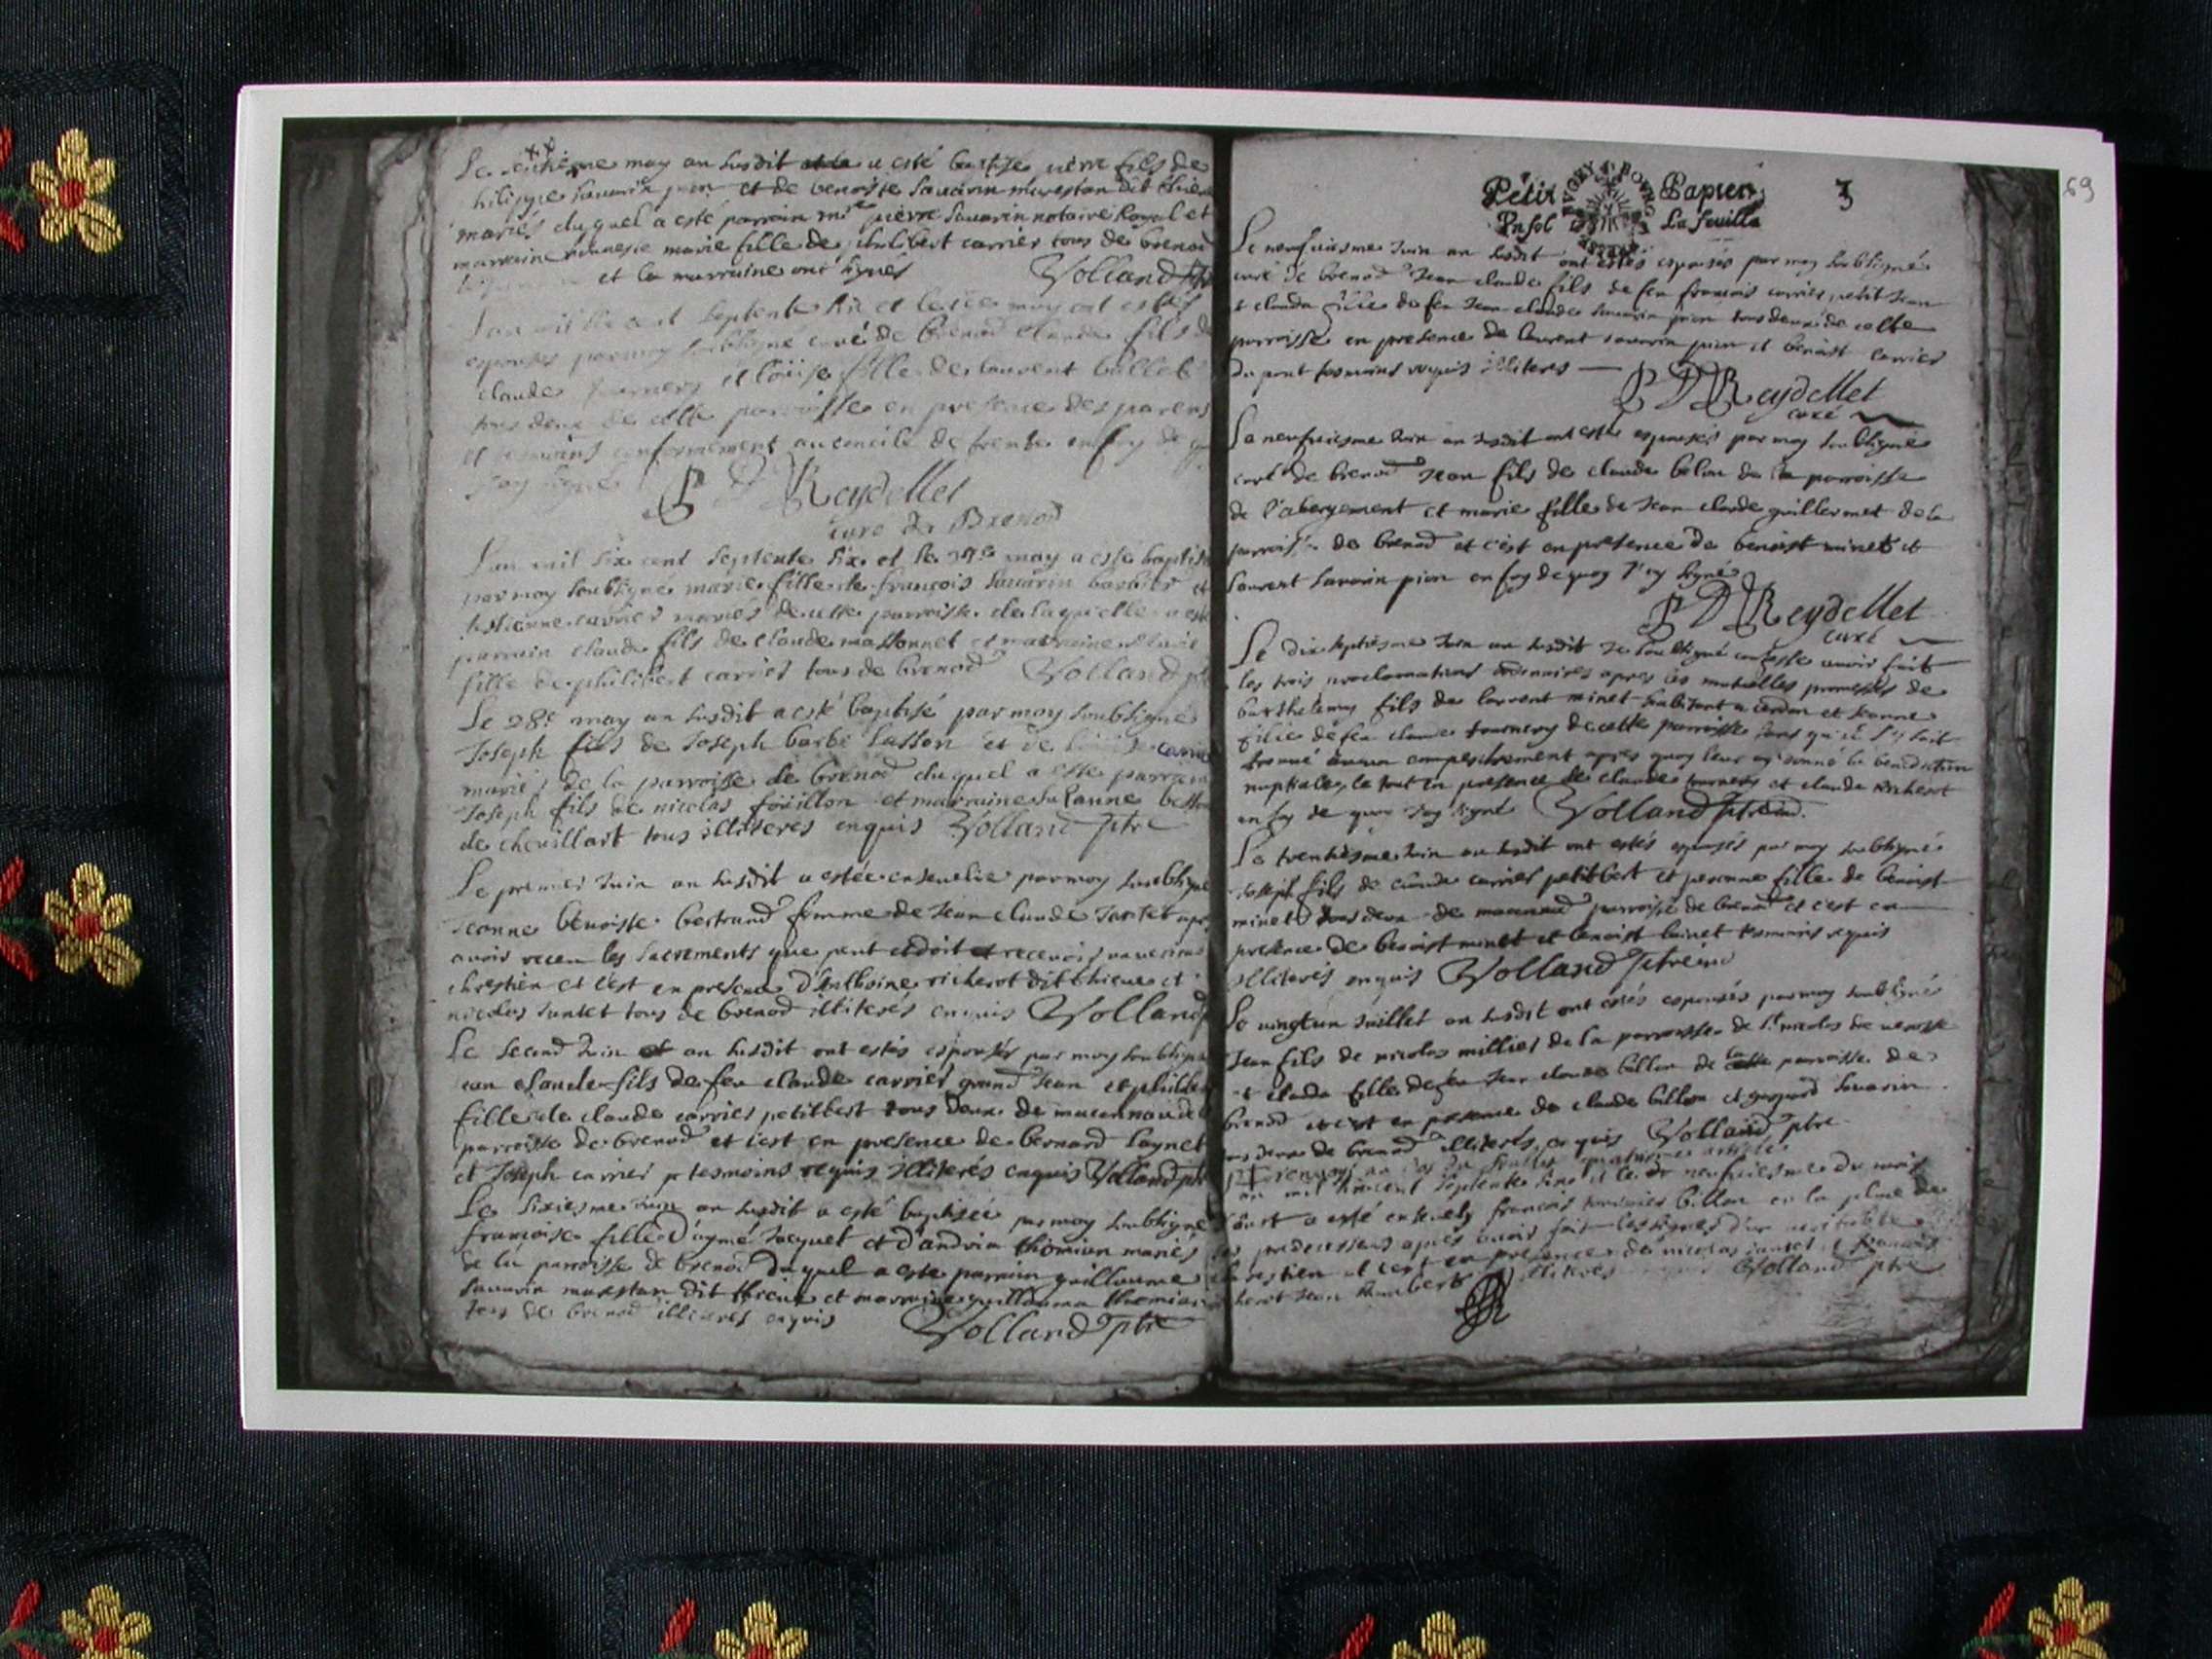 may an susdit a esté baptisé pierre fils de
et de benoiste Sauarin marestan dit thieu
mariés duquel a esté parrain mre pierre Sauarin notaire Royal et
marraine marie fille de philibert carrier tous de brenod
et la marraine ont signés Volland ptre
cent septente six et le may ont estés
espousés par moy soubsigné curé de brenod claude fils de
claude et loüise fille de laurent ballet
tous deux de cette parroisse en presence des parens
et tesmoins conformement au concile de trente en foy de
j'ay signé P D Reydellet
curé de Brenod
L'an mil six cent septente six et le may a este baptisé
par moy soubsigné marie fille de françois Sauarin barbier et
estienne carrier mariés de cette parroisse de laquelle a esté
parrain claude fils de claude massonnet et marraine
fille de philibert carrier tous de brenod Volland ptre
Le 28e may an susdit a esté baptisé par moy soubsigné
Joseph fils de Joseph barbe lasson et de carrier
mariés de la parroisse de brenod duquel a esté parrain
Joseph fils de nicolas foüillon et marraine suzanne
de cheuillart tous illiterés enquis Volland ptre
Le premier Juin an susdit a estée enseuelie par moy soubsigné
Jeanne benoiste bertrand femme de Jean claude Jantet apres
auoir receu les sacrements que peut et doit receuoir
chrestien et c'est en presence d'Anthoine richerot dit thieue et
nicolas Jantet tous de brenod illiterés enquis Volland
Le second Juin an susdit ont estés espousés par moy soubsigné
Jean claude fils de feu claude carrier grand Jean et philiberte
fille de claude carrier petitbert tous deux de maconnaud
parroisse de brenod et c'est en presence de bernard
et Joseph carrier p tesmoins requis illiterés enquis Volland ptre
Le sixiesme Juin an susdit a esté baptisée par moy soubsigné
françoise fille d'aymé Jacquet et d'andria thomian mariés
de la parroisse de brenod duquel a esté parrain guillaume
Sauarin marestan dit thieue et marraine guillauma thomian
tous de brenod illiterés enquis Volland ptre
Petit Papier 3
Un sol La feuille
69
Le neufuiesme Juin an susdit ont estés espousés par moy soubsigné
curé de brenod Jean claude fils de feu francois carrier petit Jean
et clauda fille de feu Jean claude Sauarin pion tous deux de cette
parroisse en presence de laurent sauarin pion et benoist carrier
du pont tesmoins requis illiteres
P D Reydellet
curé
Le neufuiesme Juin an susdit ont esté espousés par moy soubsigné
curé de brenod Jean fils de claude belon de la parroisse
de l'abergement et marie fille de Jean claude guillermet de la
parroisse de brenod et c'est en presence de benoist minet et
laurent Sauarin pion en foy de quoy j'ay signé
P D Reydellet
curé
Le dix septiesme Juin an susdit Je soubsigné confesse auoir fait
les trois proclamations ordinaires apres les mutuelles promesses de
barthelemy fils de laurent minet habitant a cerdon et Jeanne
fille de feu claude tournery de cette parroisse sans qu'il s'y soit
trouué aucun empeschement apres quoy leur ay donné la benediction
nuptiale, le tout en presence de claude tournery et claude richerot
en foy de quoy J'ay signé Volland ptre
Le trentiesme Juin an susdit ont estés espousés par moy soubsigné
Joseph fils de claude carrier petitbert et peronne fille de benoist
minet tous deux de maconnaud parroisse de brenod et c'est en
presence de benoist minet et benoist tesmoins requis
illiterés enquis Volland ptre
Le vingtun Juillet an susdit ont estés espousés par moy soubsigné
Jean fils de nicolas millier de la parroisse de St nicolas de
et clauda fille de feu Jean claude billon de la parroisse de
brenod et c'est en presence de claude billon et gaspard Sauarin
tous deux de brenod illiterés enquis Volland ptre
an mil six cent septente six et le neufuiesme du mois
d'Aoust a esté enseuely francois billon en la place de
ses predecesseurs apres auoir fait les signes d'un veritable
chrestien et c'est en presence de nicolas Jantet et francois
Jean humbert illiteres Volland ptre